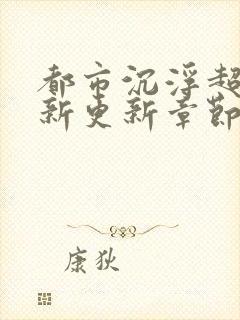 都市沉浮超
新更新章節
康狄